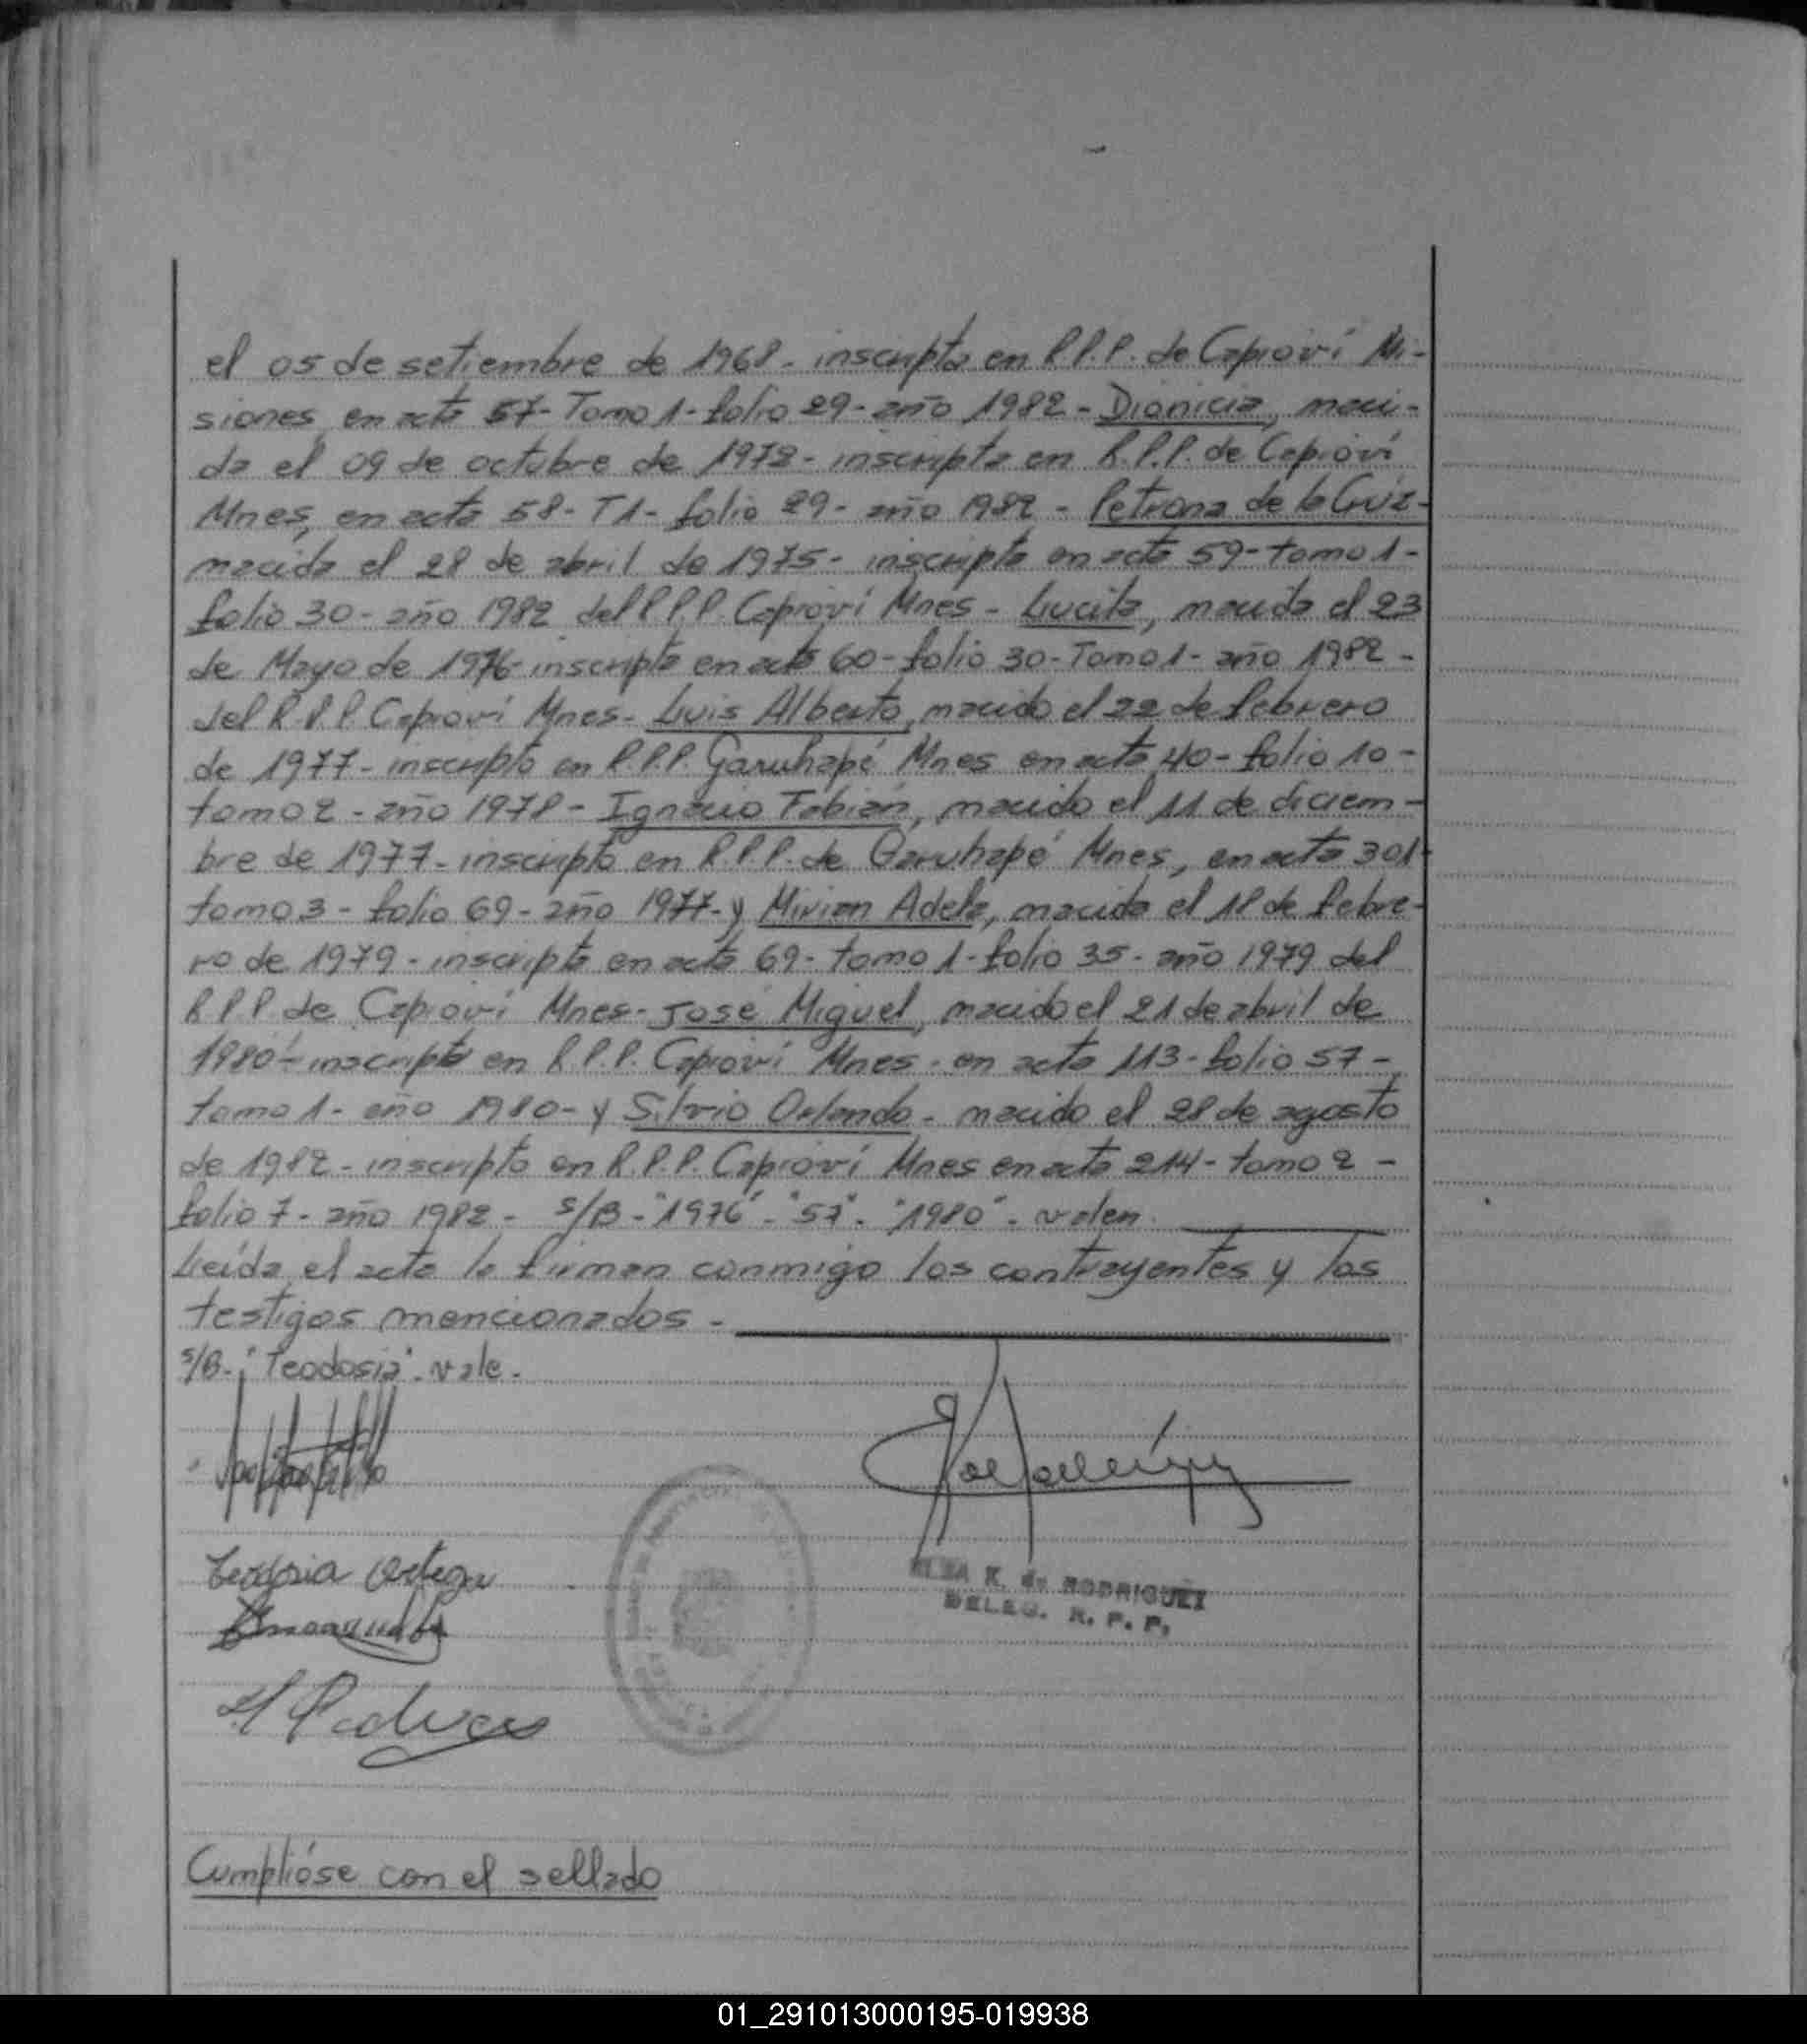 el 05 de setiembre de 1968 - inscripta en R.P.P. de Capioví Mi-
siones, en acta 57 - Tomo 1 - folio 29 - año 1982 - Dionicia, naci-
da el 09 de octubre de 1972 - inscripta en R.P.P. de Capioví
Mnes, en acta 58 - T1 - folio 29 - año 1982 - Petrona de la Cruz -
nacida el 28 de abril de 1975 - inscripta en acta 59 - tomo 1 -
folio 30 - año 1982 del R.P.P. Capioví Mnes - Lucita, nacida el 23
de Mayo de 1976 - inscripta en acta 60 - folio 30 - Tomo 1 - año 1982 -
del R.P.P. Capioví Mnes - Luis Alberto, nacido el 22 de febrero
de 1977 - inscripto en R.P.P. Garuhapé Mnes en acta 40 - folio 10 -
tomo 2 - año 1978 - Ignacio Fabián, nacido el 11 de diciem-
bre de 1977 - inscripto en R.P.P. de Garuhapé Mnes, en acta 301
tomo 3 - folio 69 - año 1977 - y Mirian Adela, nacida el 18 de febre-
ro de 1979 - inscripta en acta 69 - tomo 1 - folio 35 - año 1979 del
R.P.P. de Capioví Mnes - José Miguel, nacido el 21 de abril de
1980 - inscripto en R.P.P. Capioví Mnes - en acta 113 - folio 57 -
tomo 1 - año 1980 - y Silvio Orlando - nacido el 28 de agosto
de 1982 - inscripto en R.P.P. Capioví Mnes en acta 214 - tomo 2 -
folio 7 - año 1982 - s/B - "1976" - "57" - "1980" - valen.
Leída el acta la firman conmigo los contrayentes y los
testigos mencionados -
s/B - "Teodosia" - vale -
Teodosia Ortega
K. de RODRIGUEZ
DELEG. R. P. P.
Cumplióse con el sellado
01_291013000195-019938